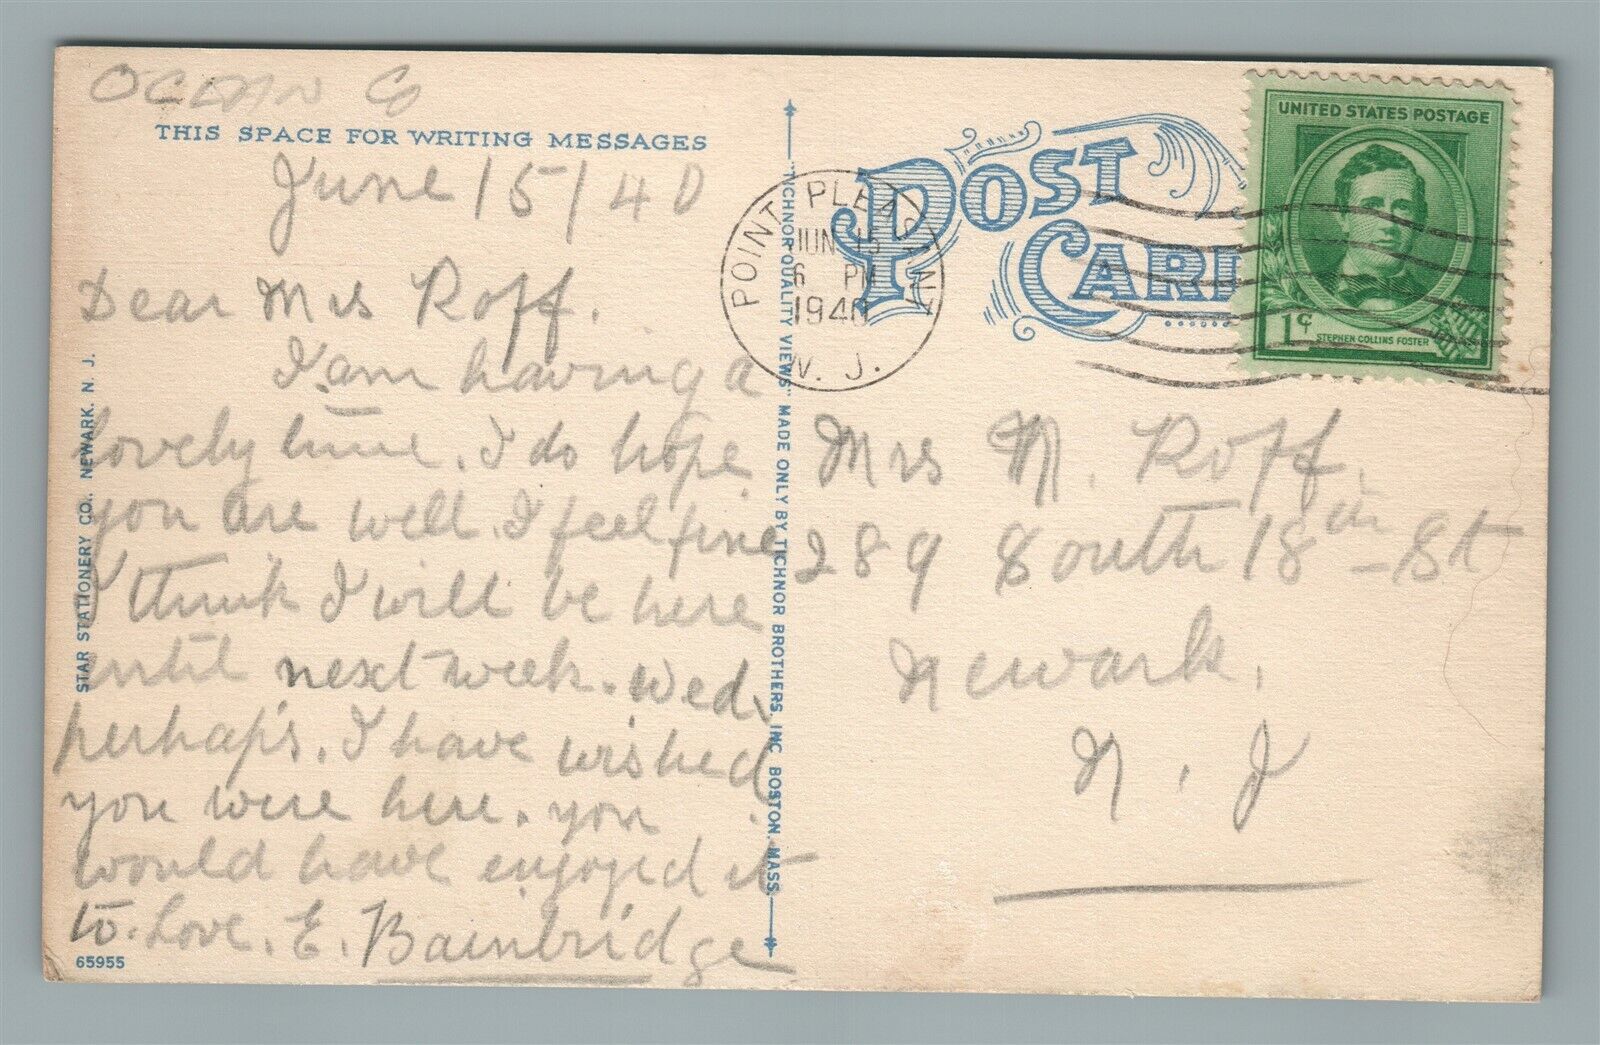 OCEAN Co
THIS SPACE FOR WRITING MESSAGES
June 15/40
Dear Mrs Roff.
I am having a
lovely time. I do hope
you are well. I feel fine
I think I will be here
until next week. Wed.
perhap's. I have wished
you were here. you
would have enjoyed it
to. Love. E. Bainbridge
65955
STAR STATIONERY CO., NEWARK, N. J.
"TICHNOR QUALITY VIEWS" MADE ONLY BY TICHNOR BROTHERS, INC. BOSTON, MASS.
POST
CARD
POINT PLEASANT
JUN 15
6 PM
1940
N. J.
UNITED STATES POSTAGE
1¢
STEPHEN COLLINS FOSTER
Mrs M. Roff.
289 South 18th - St
Newark.
N. J